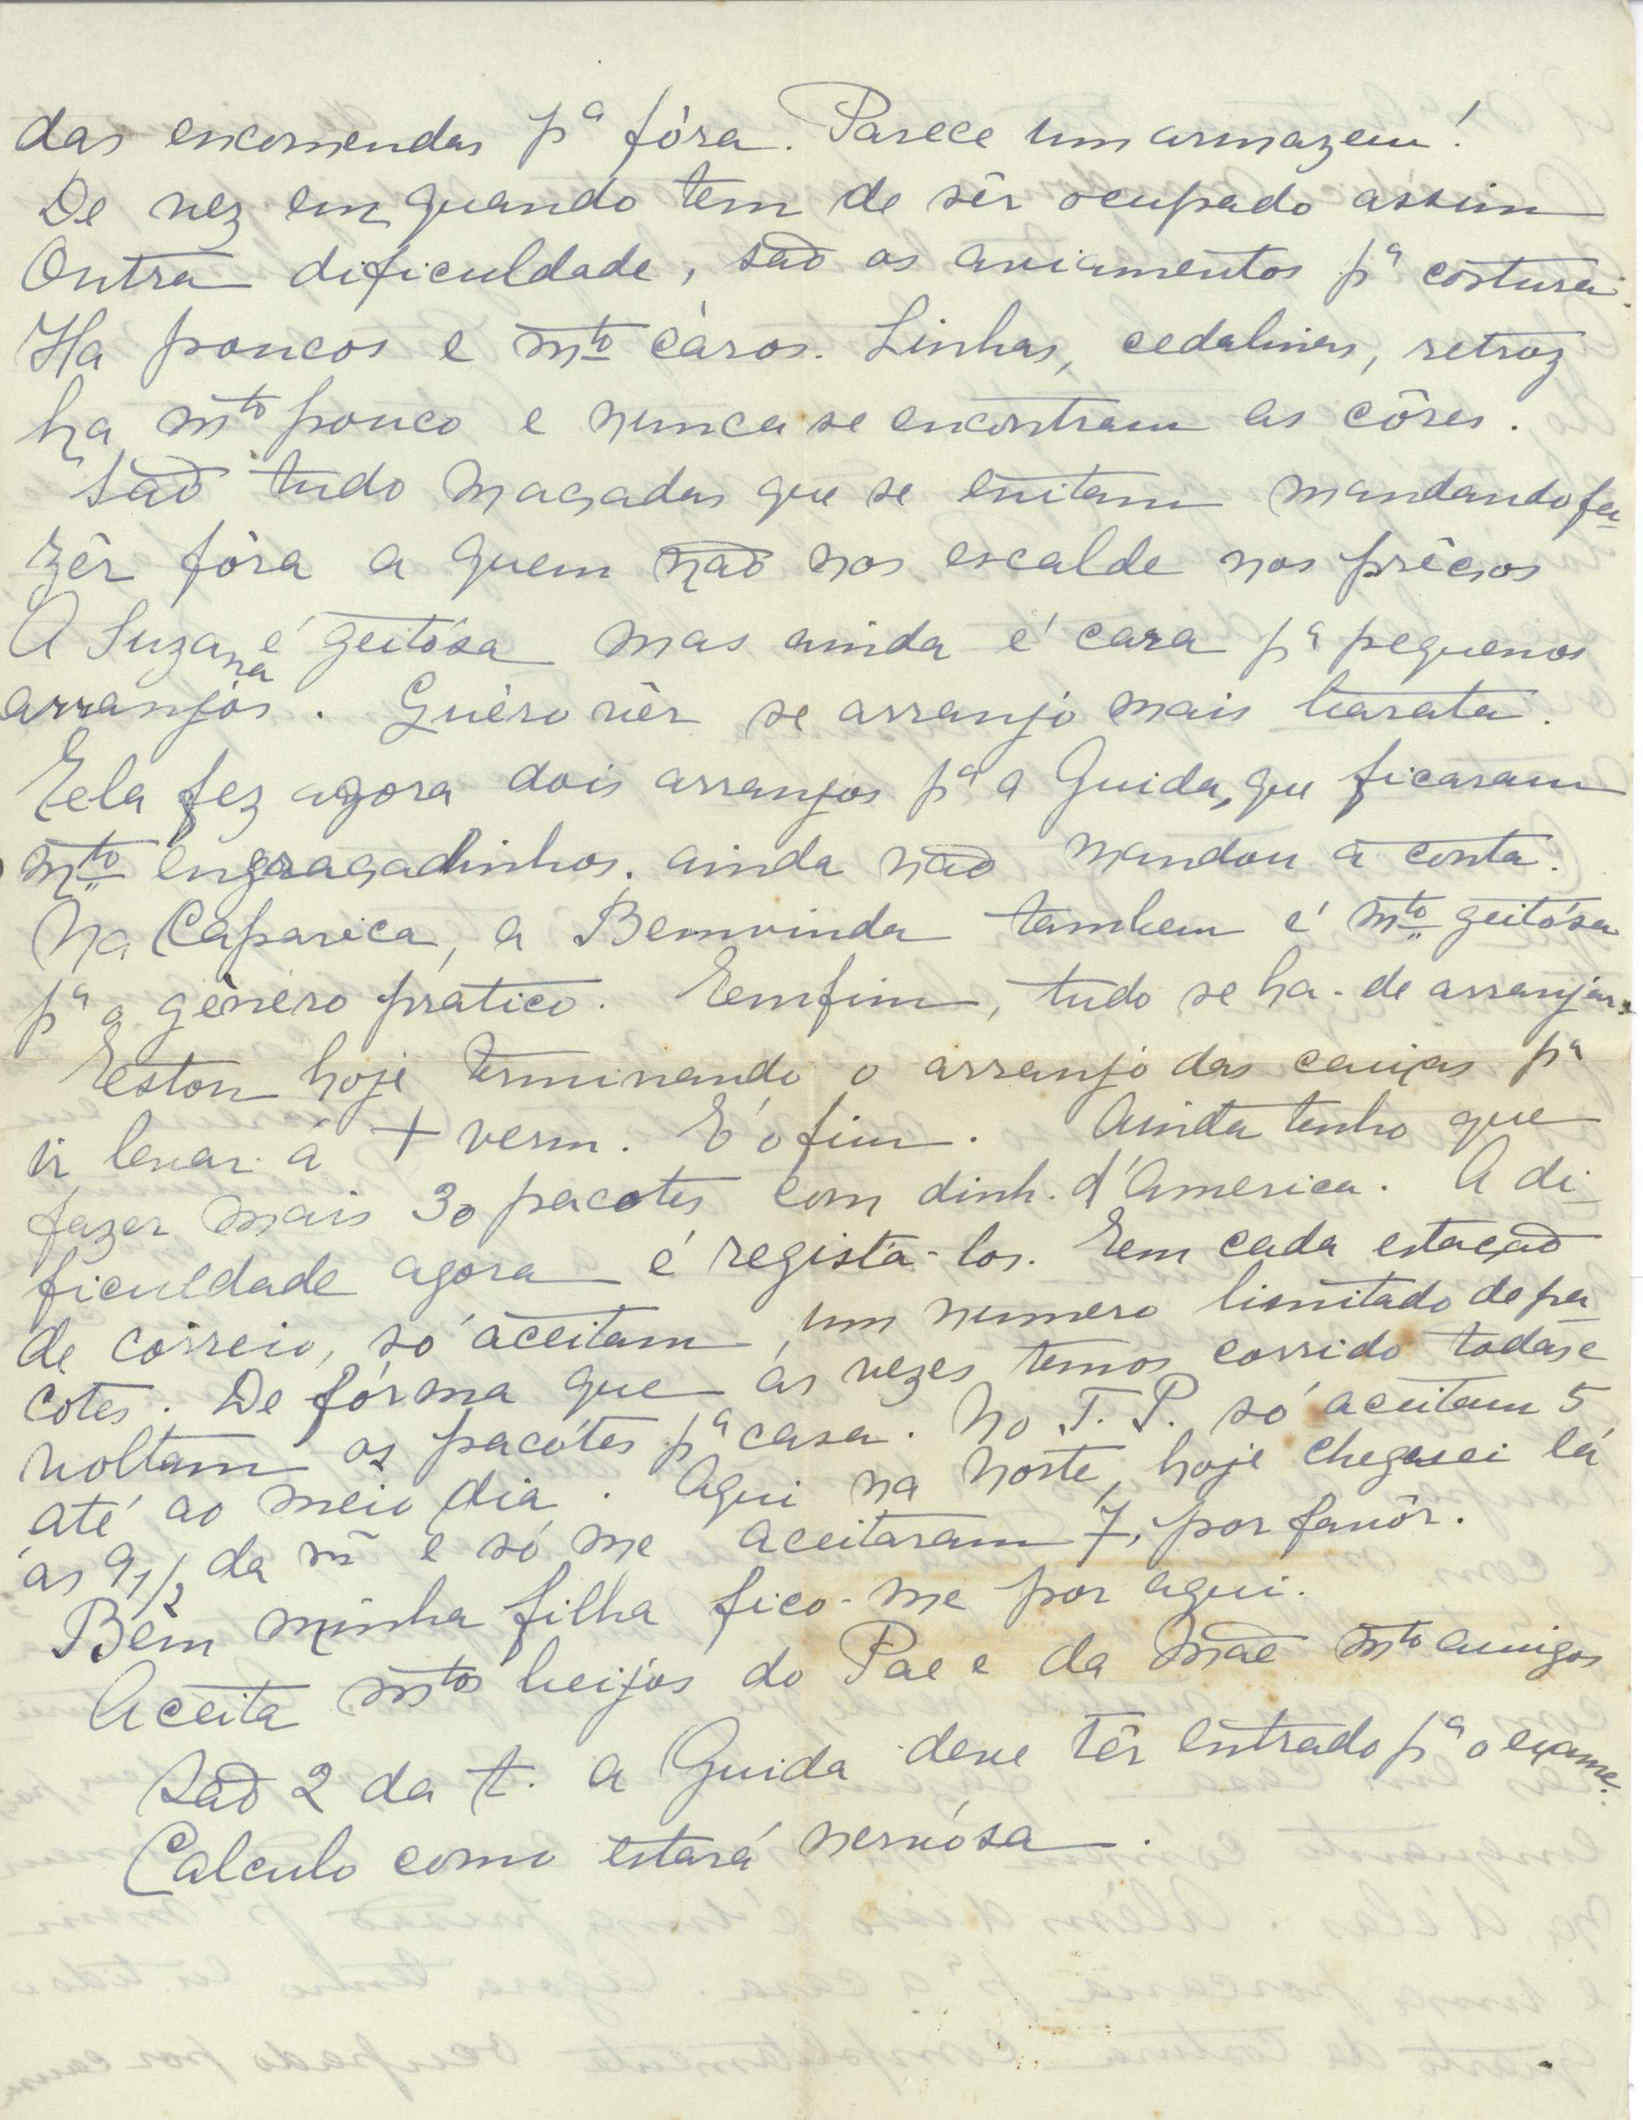 das encomendas pª fóra. Parece um armazem!
De vez em quando tem de sêr ocupado assim
Outra dificuldade, são os aviamentos pª costura.
Ha poucos e mto cáros. Linhas, cedalinas, retroz
ha mto pouco e nunca se encontram as côres.
São tudo maçadas que se evitam mandando fa-
zêr fóra a quem não nos escalde nos prêços
A Suzana é geitósa mas ainda é cara pª pequenos
arranjos. Quéro vêr se arranjo mais barata.
Ela fez agora dois arranjos pª a Guida, que ficaram
mto engraçadinhos. ainda não mandou a conta.
Na Caparica, a Bemvinda tambem é mto geitósa
pª o género pratico. Emfim, tudo se ha-de arranjar.
Estou hoje terminando o arranjo das caixas pª
ir levar á + verm. É o fim. Ainda tenho que
fazer mais 30 pacotes com dinh. d'America. A di-
ficuldade agora é registá-los. Em cada estação
de correio, só aceitam um numero limitado de pa-
cotes. De fórma que ás vezes temos corrido todas e
voltam os pacótes pª casa. No T. P. só aceitam 5
até ao meio dia. Aqui na Norte, hoje cheguei lá
ás 9 1/2 da m̃ e só me aceitaram 7, por favôr.
Bem minha filha fico-me por aqui.
Aceita mtos beijos do Pae e da Mãe mto amigos
São 2 da t. a Guida deve têr entrado pª o exame.
Calculo como estará nervósa.